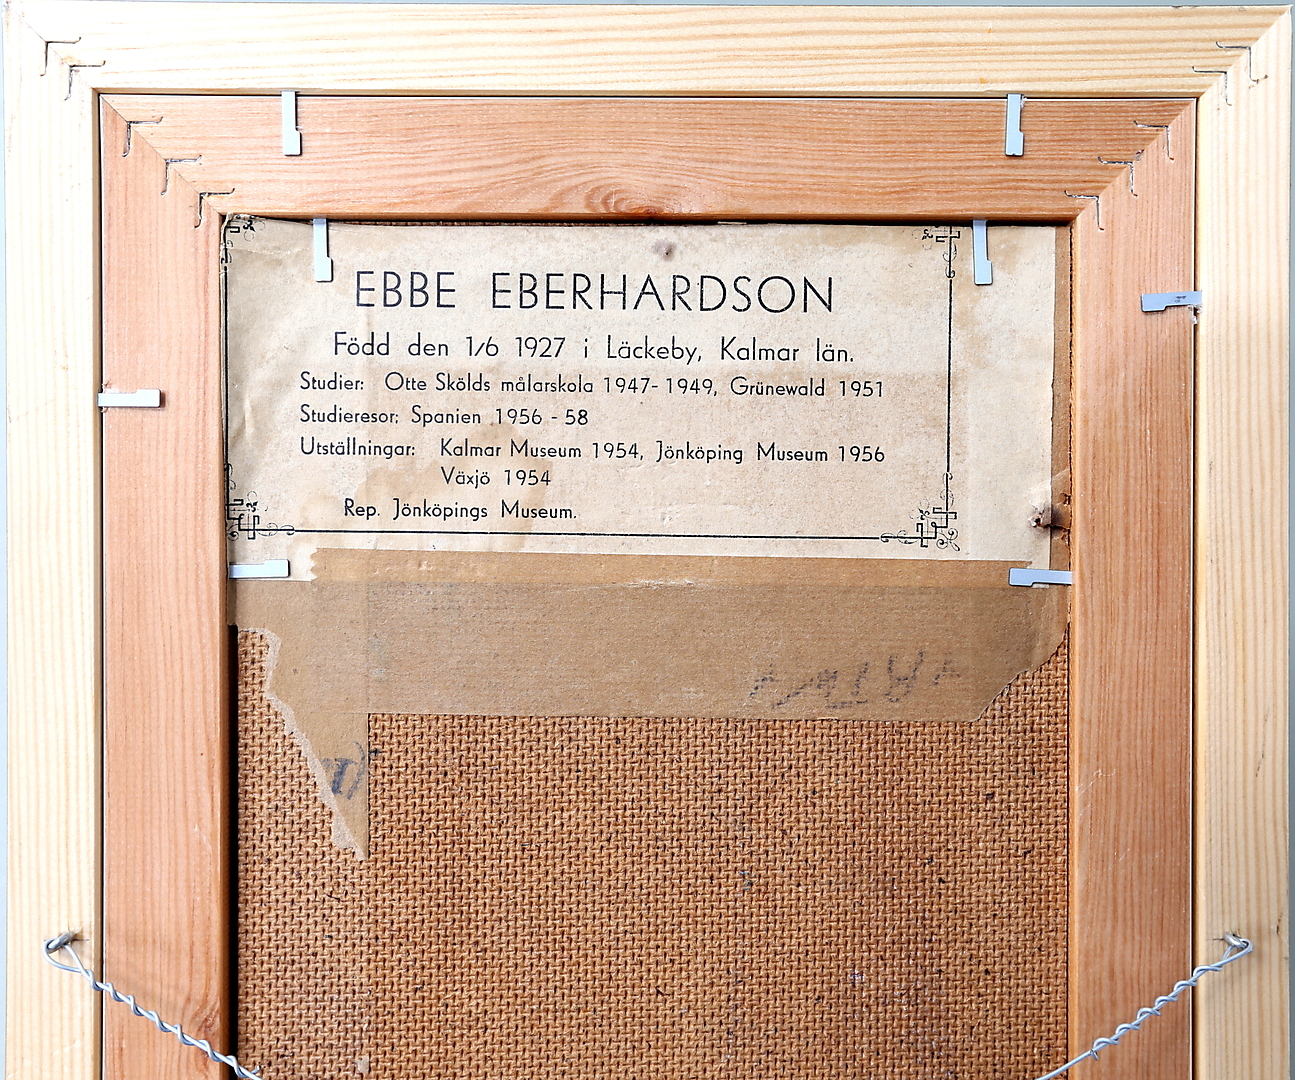 EBBE EBERHARDSON
Född den 1/6 1927 i Läckeby, Kalmar län.
Studier: Otte Skölds målarskola 1947-1949, Grünewald 1951
Studieresor: Spanien 1956 - 58
Utställningar: Kalmar Museum 1954, Jönköping Museum 1956
Växjö 1954
Rep. Jönköpings Museum.